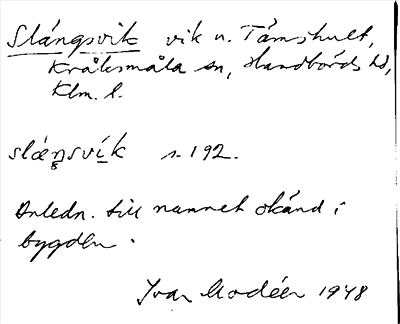 Slängsvik vik u. Tämshult,
Kråksmåla sn, Handbörds hd,
Klm. l.
slæŋsvík s. 192.
Anledn. till namnet okänd i
bygden.
Ivar Modéer 1948